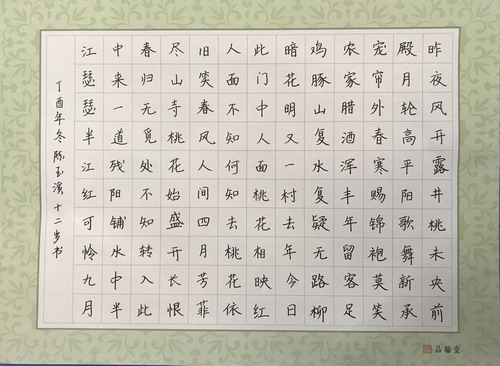 昨夜风开露井桃未央前
殿月轮高平阳歌舞新承
宠帘外春寒赐锦袍莫笑
农家腊酒浑丰年留客足
鸡豚山复水复疑无路柳
暗花明又一村去年今日
此门中人面桃花相映红
人面不知何知去桃花依
旧笑春风人间四月芳菲
尽山寺桃花始盛开长恨
春归无觅处不知转入此
中来一道残阳铺水中半
江瑟瑟半江红可怜九月
丁酉年冬 陈玉溪 十二岁书
品翰堂